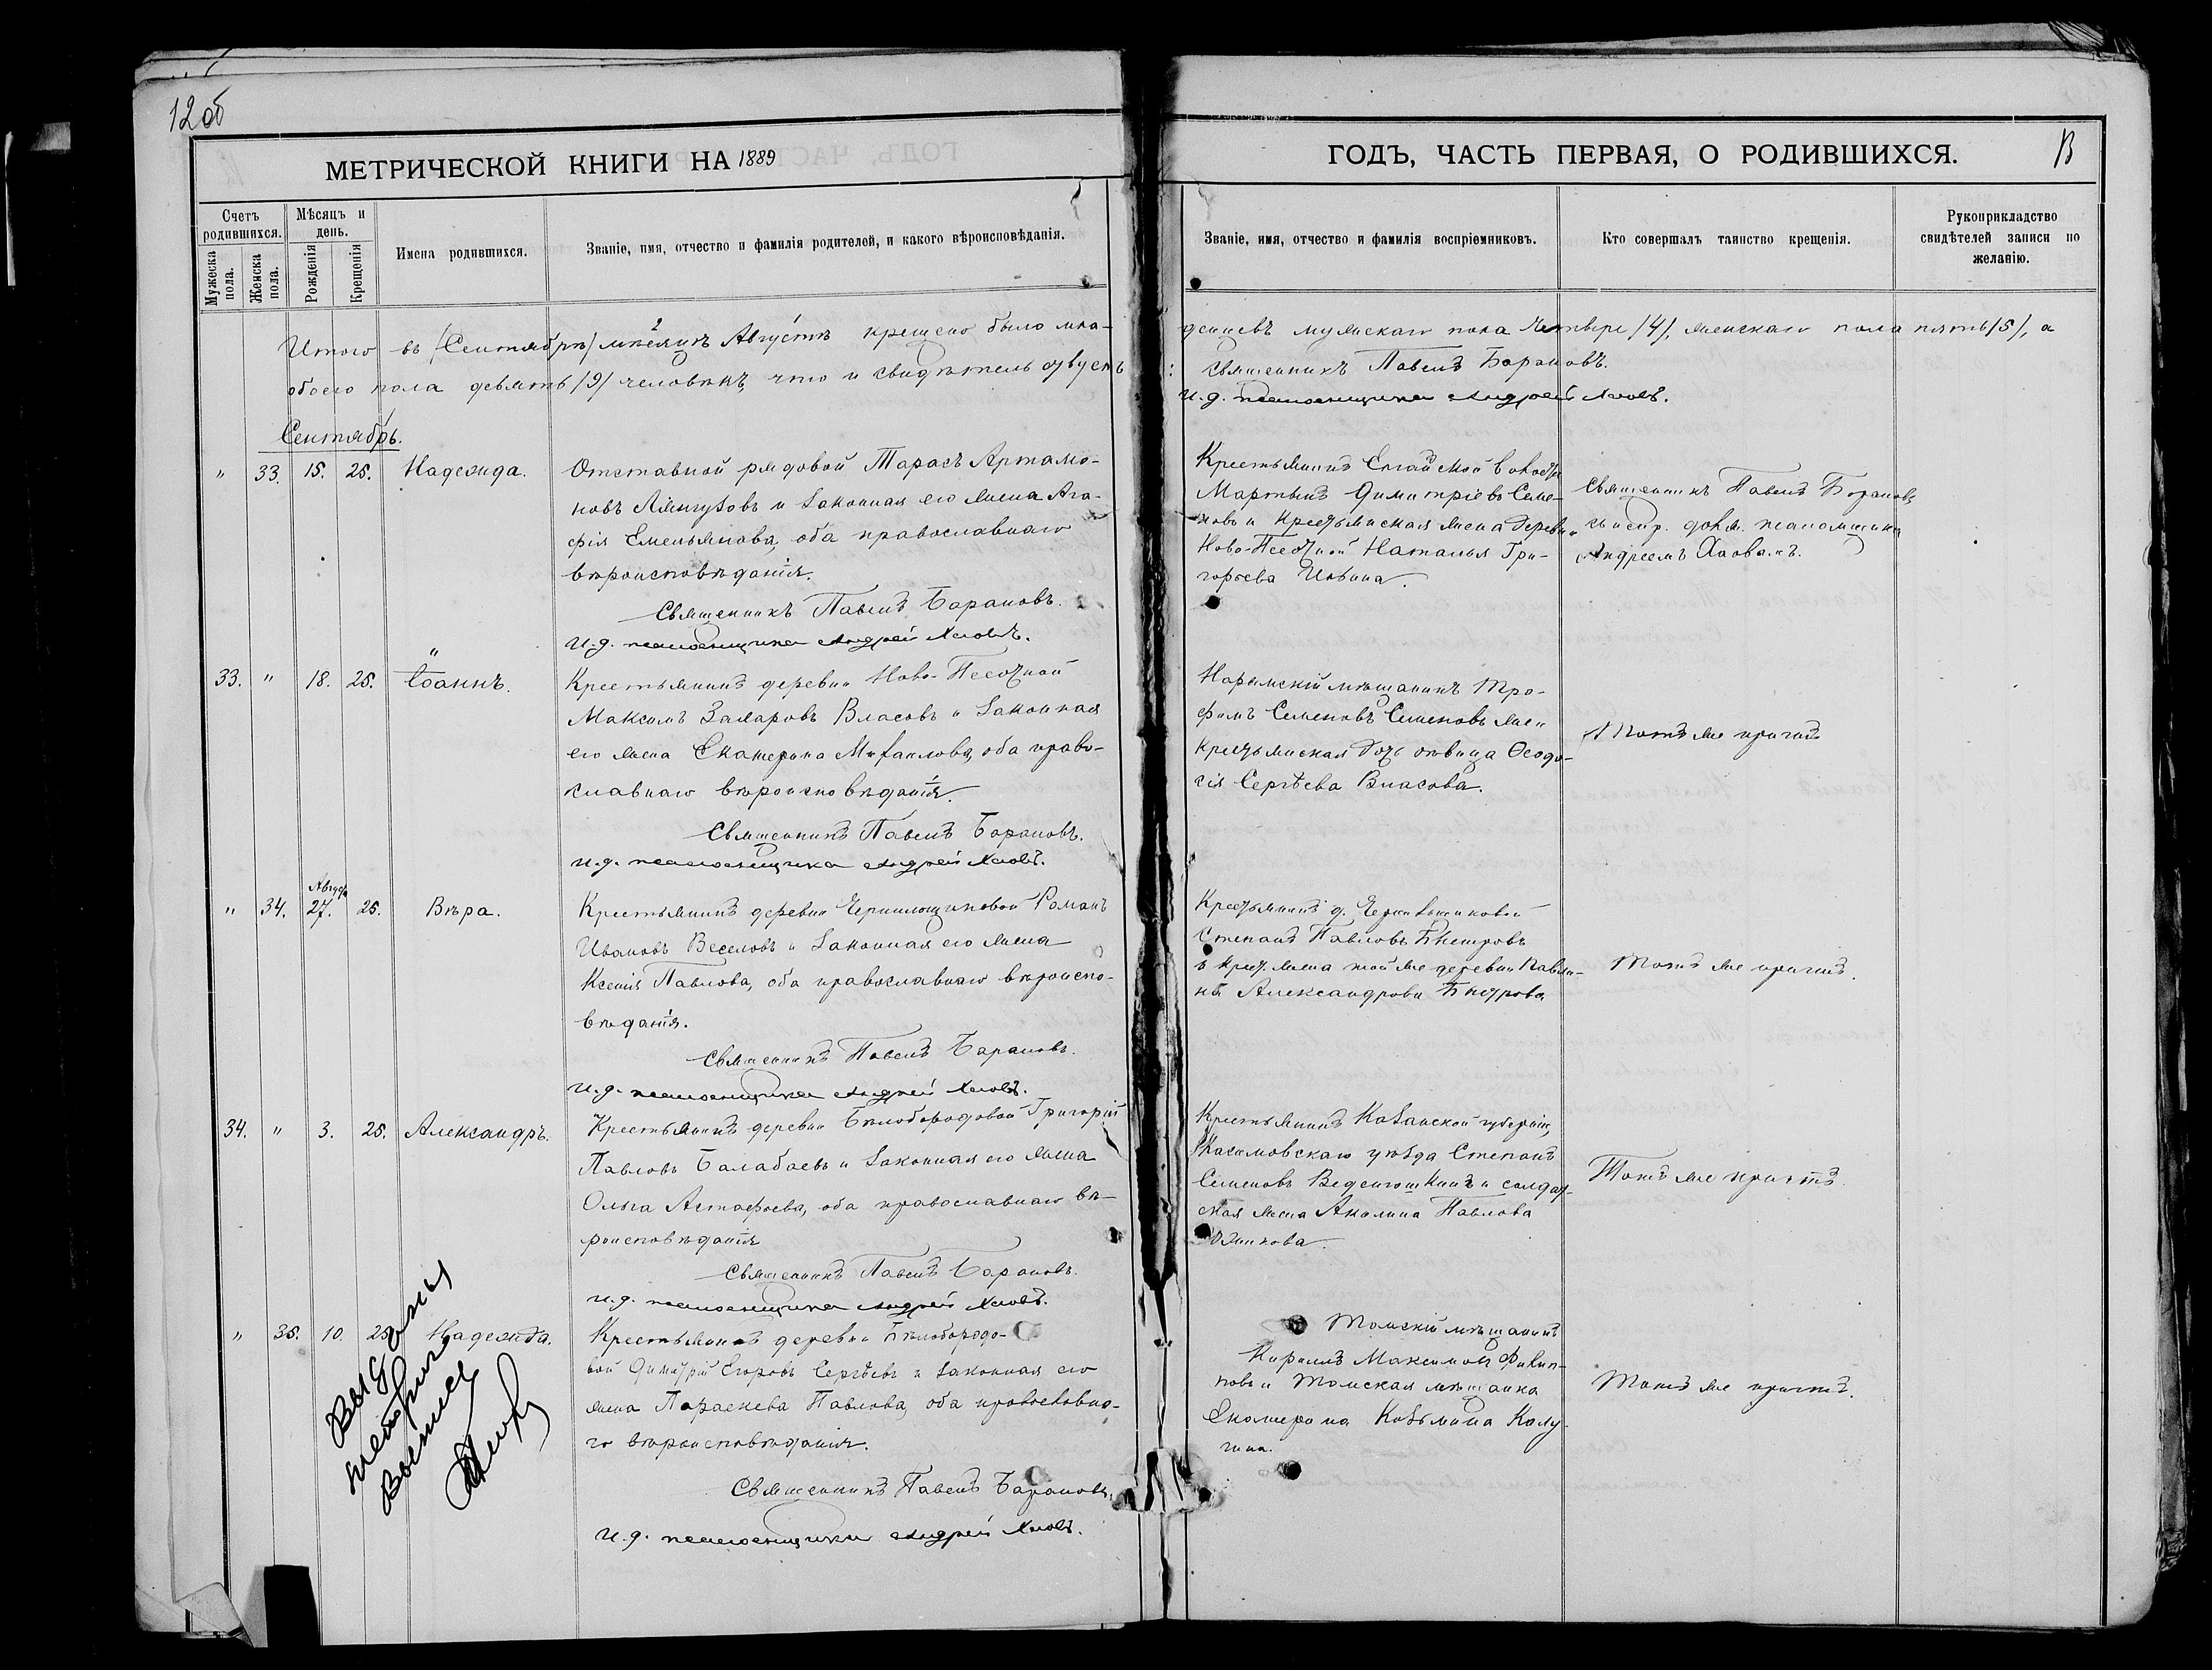 12 об
МЕТРИЧЕСКОЙ КНИГИ НА 1889
Счетъ родившихся.
Мѣсяцъ и день.
Мужеска пола.
Женска пола.
Рожденія
Крещенія
Имена родившихся.
Званіе, имя, отчество и фамилія родителей, и какого вѣроисповѣданія.
Итого въ (Сентябрѣ) мѣсяцѣ Августѣ крещено было мла-
обоего пола девять /9/ человѣкъ, что и свидѣтельствуемъ
Сентябрь.
" 33. 15. 25. Надежда.
Отставной рядовой Тарасъ Артамо-
новъ и законная его жена Ага-
фія Емельянова, оба православнаго
вѣроисповѣданія.
Священникъ Павелъ Барановъ.
И.д. псаломщика Андрей
33. " 18. 25. Іоаннъ.
Крестьянинъ деревни Ново-Песочной
Максимъ Захаровъ Власовъ и законная
его жена Екатерина Михаилова, оба право-
славнаго вѣроисповѣданія.
Священникъ Павелъ Барановъ.
И.д. псаломщика Андрей
Август
" 34. 27. 25. Вѣра.
Крестьянинъ деревни Романъ
Ивановъ Веселовъ и законная его жена
Ксенія Павлова, оба православнаго вѣроиспо-
вѣданія.
Священникъ Павелъ Барановъ.
И.д. псаломщика Андрей
34. " 3. 25. Александръ.
Крестьянинъ деревни Бѣлобородовой Григорій
Павловъ Балабаевъ и законная его жена
Ольга Астафьева, оба православнаго вѣ-
роисповѣданія
Священникъ Павелъ Барановъ.
И.д. псаломщика Андрей
" 35. 10. 25. Надежда.
Крестьянинъ деревни Бѣлобородо-
вой Димитрій Егоровъ Сергѣевъ и законная его
жена Параскева Павлова, оба православна-
го вѣроисповѣданія.
Священникъ Павелъ Барановъ.
И.д. псаломщика Андрей
Выданы
метрики
ГОДЪ, ЧАСТЬ ПЕРВАЯ, О РОДИВШИХСЯ.
Званіе, имя, отчество и фамилія воспріемниковъ.
Кто совершалъ таинство крещенія.
Рукоприкладство свидѣтелей записи по желанію.
денцевъ мужскаго пола четыре /4/, женскаго пола пять /5/, а
Священникъ Павелъ Барановъ.
И.д. псаломщика Андрей
Крестьянинъ Елгайской волости
Мартынъ Димитріевъ Семе-
новъ и крестьянская жена деревни
Ново-Песочной Наталья Гри-
горьева
Священникъ Павелъ Барановъ
съ испр. долж. псаломщика
Андреемъ
Нарымскій мѣщанинъ Тро-
фимъ Семеновъ Семеновъ же и
крестьянская дочь дѣвица Ѳеодо-
сія Сергѣева Власова.
Тотъ же причтъ
Крестьянинъ д.
Степанъ Павловъ
и крест. жена той же деревни
Александрова
Тотъ же причтъ.
Крестьянинъ Казанской губерніи,
уѣзда Степанъ
Семеновъ и солдат-
ская жена Акилина Павлова
Тотъ же причтъ.
Томскій мѣщанинъ
Кириллъ Максимовъ Филип-
повъ и Томская мѣщанка
Екатерина Козьмина Калу-
гина.
Тотъ же причтъ.